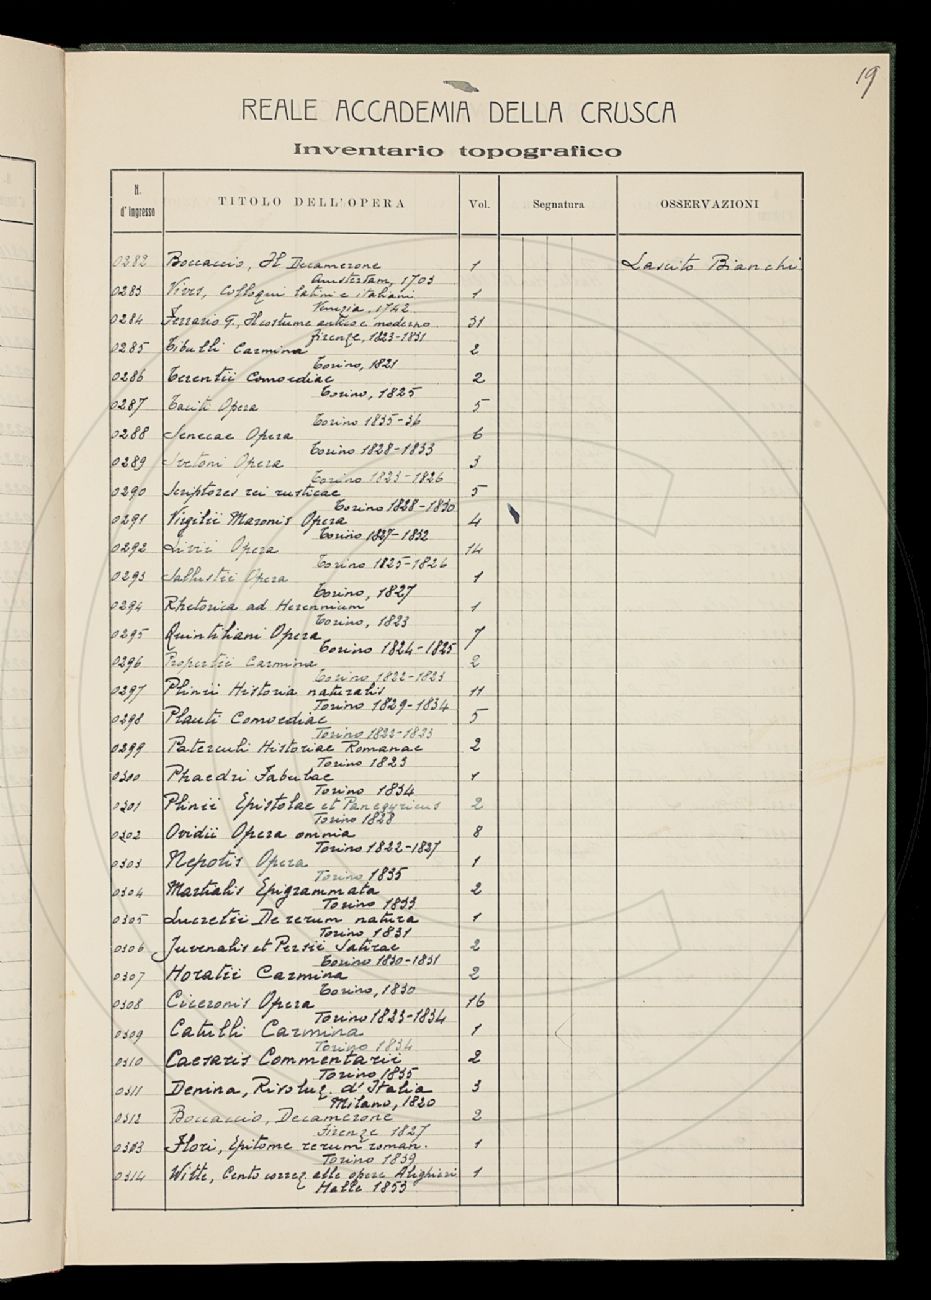 19
REALE ACCADEMIA DELLA CRUSCA
Inventario topografico
N. d'Ingresso TITOLO DELL'OPERA Vol. Segnatura OSSERVAZIONI
0282 Boccaccio, Il Decamerone 1 Lascito Bianchi
Amsterdam, 1703
0283 Vives, Colloqui latini e italiani 1
Venezia, 1742
0284 Ferrario G., Il costume antico e moderno 31
Firenze, 1823-1831
0285 Tibulli Carmina 2
Torino, 1821
0286 Terentii Comoediae 2
Torino, 1825
0287 Taciti Opera 5
Torino 1835-36
0288 Senecae Opera 6
Torino 1828-1833
0289 Svetoni Opera 3
Torino 1823-1826
0290 Scriptores rei rusticae 5
Torino 1828-1830
0291 Virgilii Maronis Opera 4
Torino 1827-1832
0292 Livii Opera 14
Torino 1825-1826
0293 Sallustii Opera 1
Torino, 1827
0294 Rhetorica ad Herennium 1
Torino, 1823
0295 Quintiliani Opera 7
Torino 1824-1825
0296 Propertii Carmina 2
Torino 1822-1823
0297 Plinii Historia naturalis 11
Torino 1829-1834
0298 Plauti Comoediae 5
Torino 1822-1823
0299 Paterculi Historiae Romanae 2
Torino 1823
0300 Phaedri Fabulae 1
Torino 1834
0301 Plinii Epistolae et Panegyricus 2
Torino 1828
0302 Ovidii Opera omnia 8
Torino 1822-1827
0303 Nepotis Opera 1
Torino 1835
0304 Martialis Epigrammata 2
Torino 1833
0305 Lucretii De rerum natura 1
Torino 1831
0306 Juvenalis et Persii Satirae 2
Torino 1830-1831
0307 Horatii Carmina 2
Torino, 1830
0308 Ciceronis Opera 16
Torino 1823-1834
0309 Catulli Carmina 1
Torino 1834
0310 Caesaris Commentarii 2
Torino 1835
0311 Denina, Rivoluz. d'Italia 3
Milano, 1820
0312 Boccaccio, Decamerone 2
Firenze 1827
0313 Flori, Epitome rerum roman. 1
Torino 1839
0314 Witte, Cento correz. alle opere Alighieri 1
Halle 1853